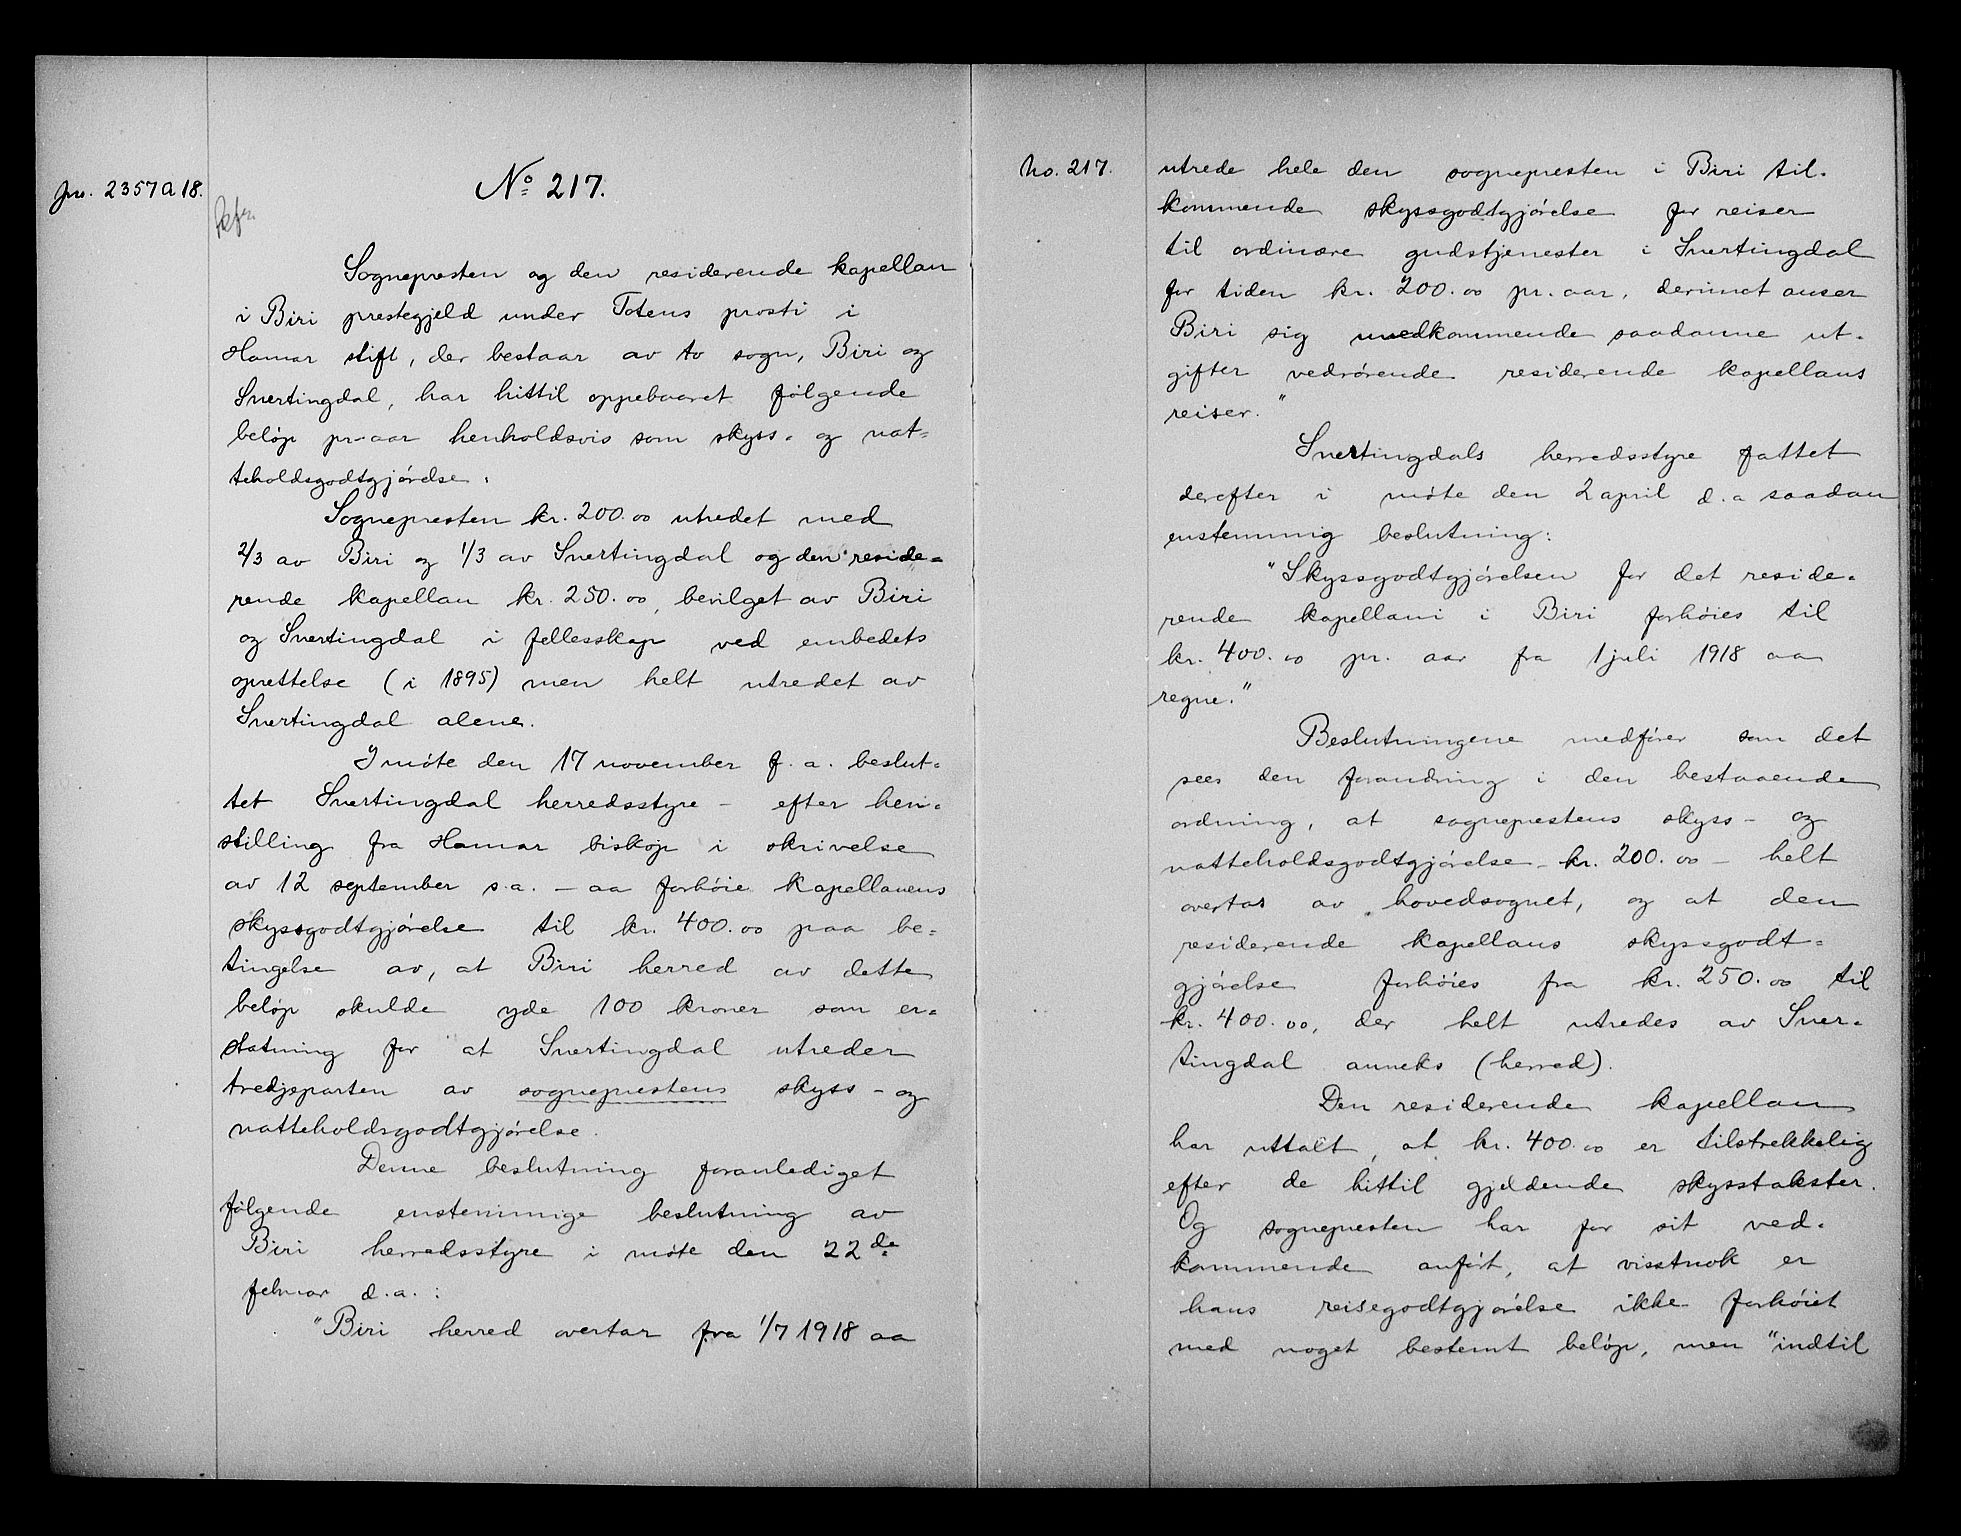 Jnr. 2357 A 18.
No 217.
Sognepresten og den residerende kapellan
i Biri prestegjeld under Totens prosti i
Hamar stift, der bestaar av to sogn, Biri og
Snertingdal, har hittil oppebaaret følgende
beløp pr. aar henholdsvis som skyss- og nat-
teholdsgodtgjørelse:
Sognepresten kr. 200.00 utredet med
2/3 av Biri og 1/3 av Snertingdal og den reside-
rende kapellan kr. 250.00, bevilget av Biri
og Snertingdal i fellesskap ved embedets
oprettelse (i 1895) men helt utredet av
Snertingdal alene.
I møte den 17 november f. a. beslut-
tet Snertingdal herredsstyre - efter hen-
stilling fra Hamar biskop i skrivelse
av 12 september s.a. - aa forhøie kapellanens
skyssgodtgjørelse til kr. 400.00 paa be-
tingelse av, at Biri herred av dette
beløp skulde yde 100 kroner som er-
statning for at Snertingdal utreder
tredjeparten av sogneprestens skyss- og
natteholdsgodtgjørelse.
Denne beslutning foranlediget
følgende enstemmige beslutning av
Biri herredsstyre i møte den 22de
februar d.a.:
"Biri herred overtar fra 1/7 1918 aa
No. 217.
utrede hele den sognepresten i Biri til-
kommende skyssgodtgjørelse for reiser
til ordinære gudstjenester i Snertingdal
for tiden kr. 200.00 pr. aar, derimot anser
Biri sig uvedkommende saadanne ut-
gifter vedrørende residerende kapellans
reiser."
Snertingdals herredsstyre fattet
derefter i møte den 2 april d.a saadan
enstemmig beslutning:
"Skyssgodtgjørelsen for det reside-
rende kapellani i Biri forhøies til
kr. 400.00 pr. aar fra 1 juli 1918 aa
regne."
Beslutningene medfører som det
sees den forandring i den bestaaende
ordning, at sogneprestens skyss- og
natteholdsgodtgjørelse - kr. 200.00 - helt
overtas av hovedsognet, og at den
residerende kapellans skyssgodt-
gjørelse forhøies fra kr. 250.00 til
kr. 400.00, der helt utredes av Sner-
tingdal anneks (herred).
Den residerende kapellan
har uttalt, at kr. 400.00 er tilstrekkelig
efter de hittil gjeldende skysstakster.
Og sognepresten har for sit ved-
kommende anført, at visstnok er
hans reisegodtgjørelse ikke forhøiet
med noget bestemt beløp, men "indtil